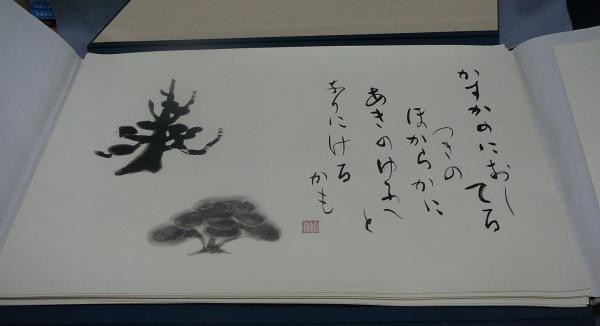 かすかのにおし
てる
つきの
ほからかに
あきのゆふへと
なりにける
かも